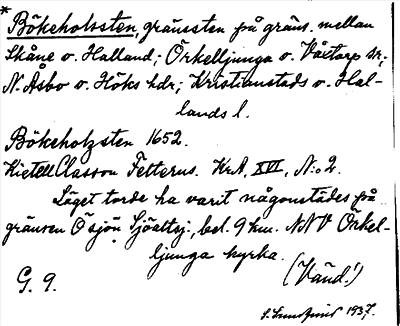 * Bökeholssten, gränssten på gräns. mellan
Skåne o. Halland; Örkelljunga o. Våxtorp sr,
N. Åsbo o. Höks hdr; Kristianstads o. Hal-
lands l.
Bökeholzsten 1652.
Kietell Classon Fetterus. Kr.A, XVI, N:o 2.
Läget torde ha varit någonstädes på
gränsen Ö sjön Sjöaltsj., bel. 9 km. NNV Örkel-
ljunga kyrka.
G. 9. (Vänd!)
1937.